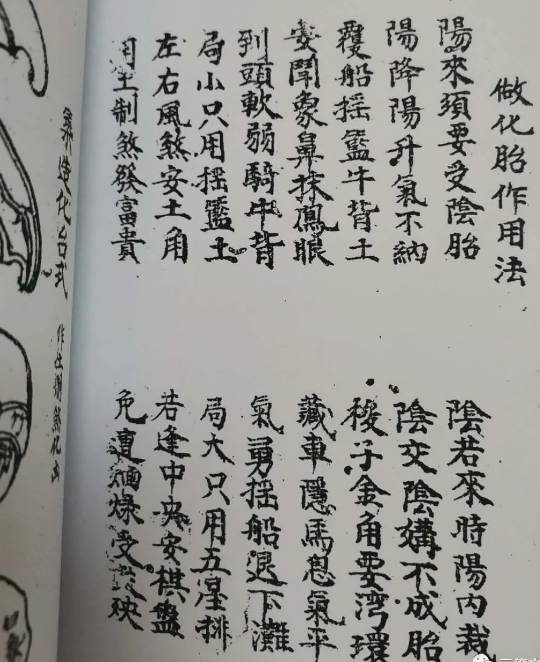 做化胎作用法
陽來須要受陰胎
陰若來時陽内裁
陽降陽升氣不納
陰交陰媾不成胎
覆船摇籃牛背土
梭子金角要湾環
聞象鼻抹鳳眼
藏車隱馬息氣平
到頭軟弱騎牛背
氣勇摇船退下灘
局小只用摇籃土
局大只用五星排
左右風煞安土角
若逢中央安棋盤
用土制煞發富貴
免遭燥受殃
造化台式